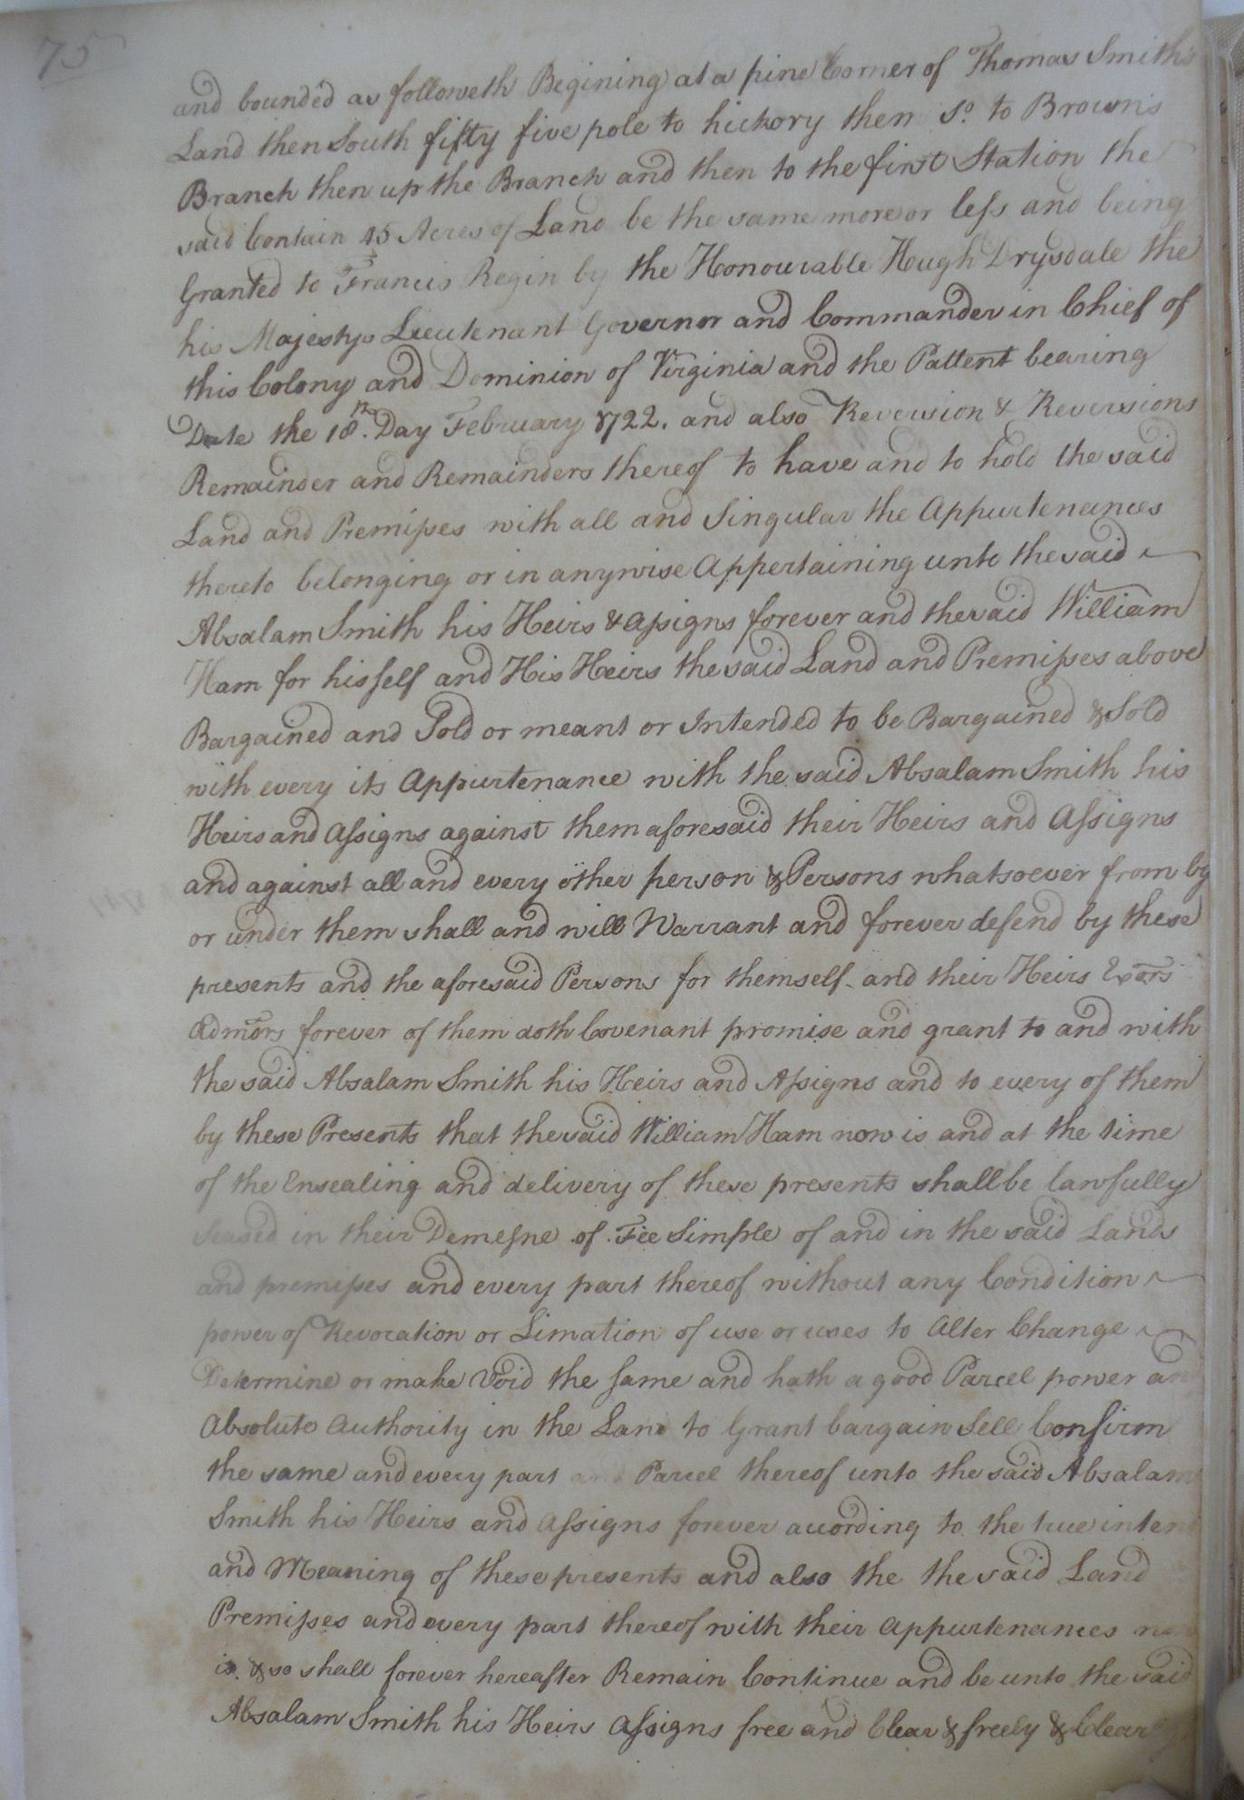 75
and bounded as followeth Begining at a pine Corner of Thomas Smith's
Land then South fifty five pole to hickory then So. to Browns
Branch then up the Branch and then to the first Station the
said Contain 45 Acres of Land be the same more or less and being
Granted to Francis Regin by the Honourable Hough Drysdale the
his Majestys Lieutenant Governor and Commander in Chief of
this Colony and Dominion of Virginia and the Pattent bearing
Date the 18th. Day February 1722. and also Reversion & Reversions
Remainder and Remainders thereof to have and to hold the said
Land and Premisses with all and Singular the Appurtenances
thereto belonging or in anywise Appertaining unto the said
Absalam Smith his Heirs & Assigns forever and the said William
Ham for hisself and His Heirs the said Land and Premisses above
Bargained and Sold or meant or Intended to be Bargained & Sold
with every its Appurtenance with the said Absalam Smith his
Heirs and Assigns against them aforesaid their Heirs and Assigns
and against all and every other person & Persons whatsoever from by
or under them shall and will Warrant and forever defend by these
presents and the aforesaid Persons for themself and their Heirs Exors
Admors forever of them doth Covenant promise and grant to and with
the said Absalam Smith his Heirs and Assigns and to every of them
by these Presents that the said William Ham now is and at the time
of the Ensealing and delivery of these presents shall be lawfully
Seased in their Demesne of Fee Simple of and in the said Lands
and premisses and every part thereof without any Condition
power of Revocation or Limation of use or uses to Alter Change
Determine or make Void the same and hath a good Parcel power and
Absolute Authority in the Land to Grant bargain Sell Confirm
the same and every part and Parcel thereof unto the said Absalam
Smith his Heirs and Assigns forever acording to the true intent
and Meaning of these presents and also the the said Land
Premisses and every part thereof with their Appurtenances now
is & so shall forever hereafter Remain Continue and be unto the said
Absalam Smith his Heirs Assigns free and Clear & freely & Clear